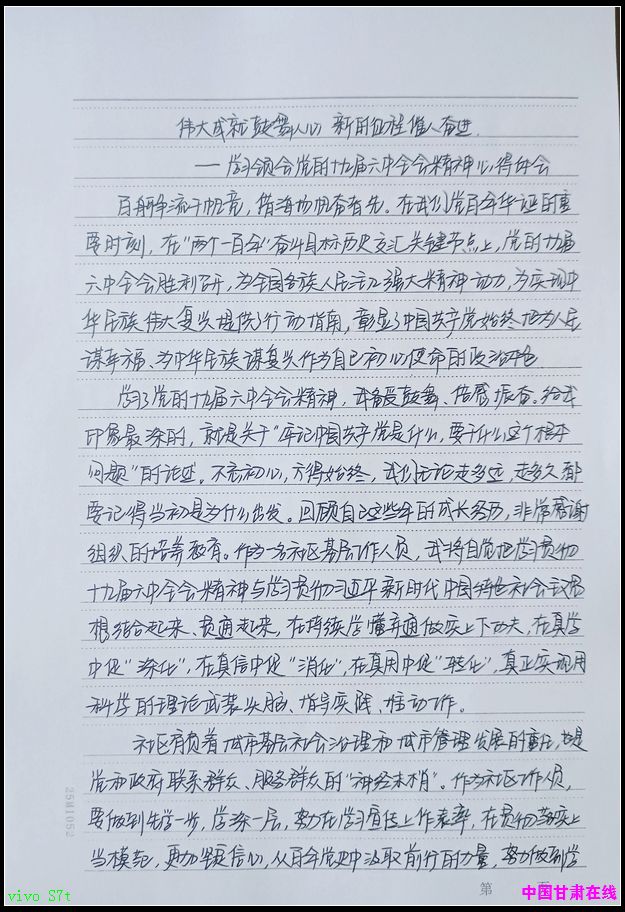 伟大成就鼓舞人心 新的征程催人奋进.
——学习领会党的十九届六中全会精神心得体会
百舸争流千帆竞，借海扬帆奋者先。在我们党百年华诞的重
要时刻，在“两个一百年”奋斗目标历史交汇关键节点上，党的十九届
六中全会胜利召开，为全国各族人民注入强大精神动力，为实现中
华民族伟大复兴提供了行动指南，彰显了中国共产党始终把为人民
谋幸福、为中华民族谋复兴作为自己初心使命的政治本色
学习了党的十九届六中全会精神，我备受鼓舞、倍感振奋。给我
印象最深的，就是关于“牢记中国共产党是什么，要干什么这个根本
问题”的论述。不忘初心，方得始终，我们无论走多远，走多久都
要记得当初是为什么出发。回顾自己这些年的成长经历，非常感谢
组织的培养教育。作为一名社区基层工作人员，我将自觉把学习贯彻
十九届六中全会精神与学习贯彻习近平新时代中国特色社会主义思
想结合起来、贯通起来，在持续学懂弄通做实上下功夫，在真学
中促“深化”，在真信中促“消化”，在真用中促“转化”，真正实现用
科学的理论武装头脑、指导实践、推动工作。
社区肩负着城市基层社会治理和城市管理发展的重任，也是
党和政府联系群众、服务群众的“神经末梢”。作为社区工作人员，
要做到先学一步，学深一层，努力在学习宣传上作表率，在贯彻落实上
当模范，更加坚定信心，从百年党史中汲取前行的力量，努力做到学
25M1052
第 页
vivo S7t
中国甘肃在线